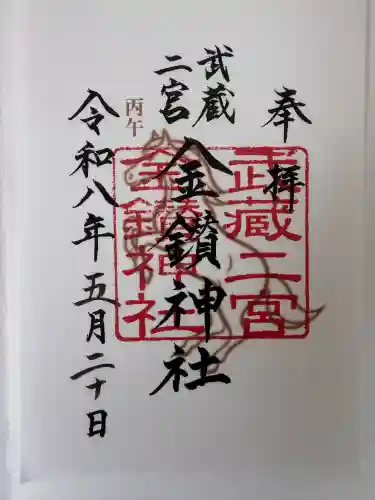 奉拝
武蔵
二宮
金鑚神社
武蔵二宮
金鑚神社
丙午
令和八年五月二十日